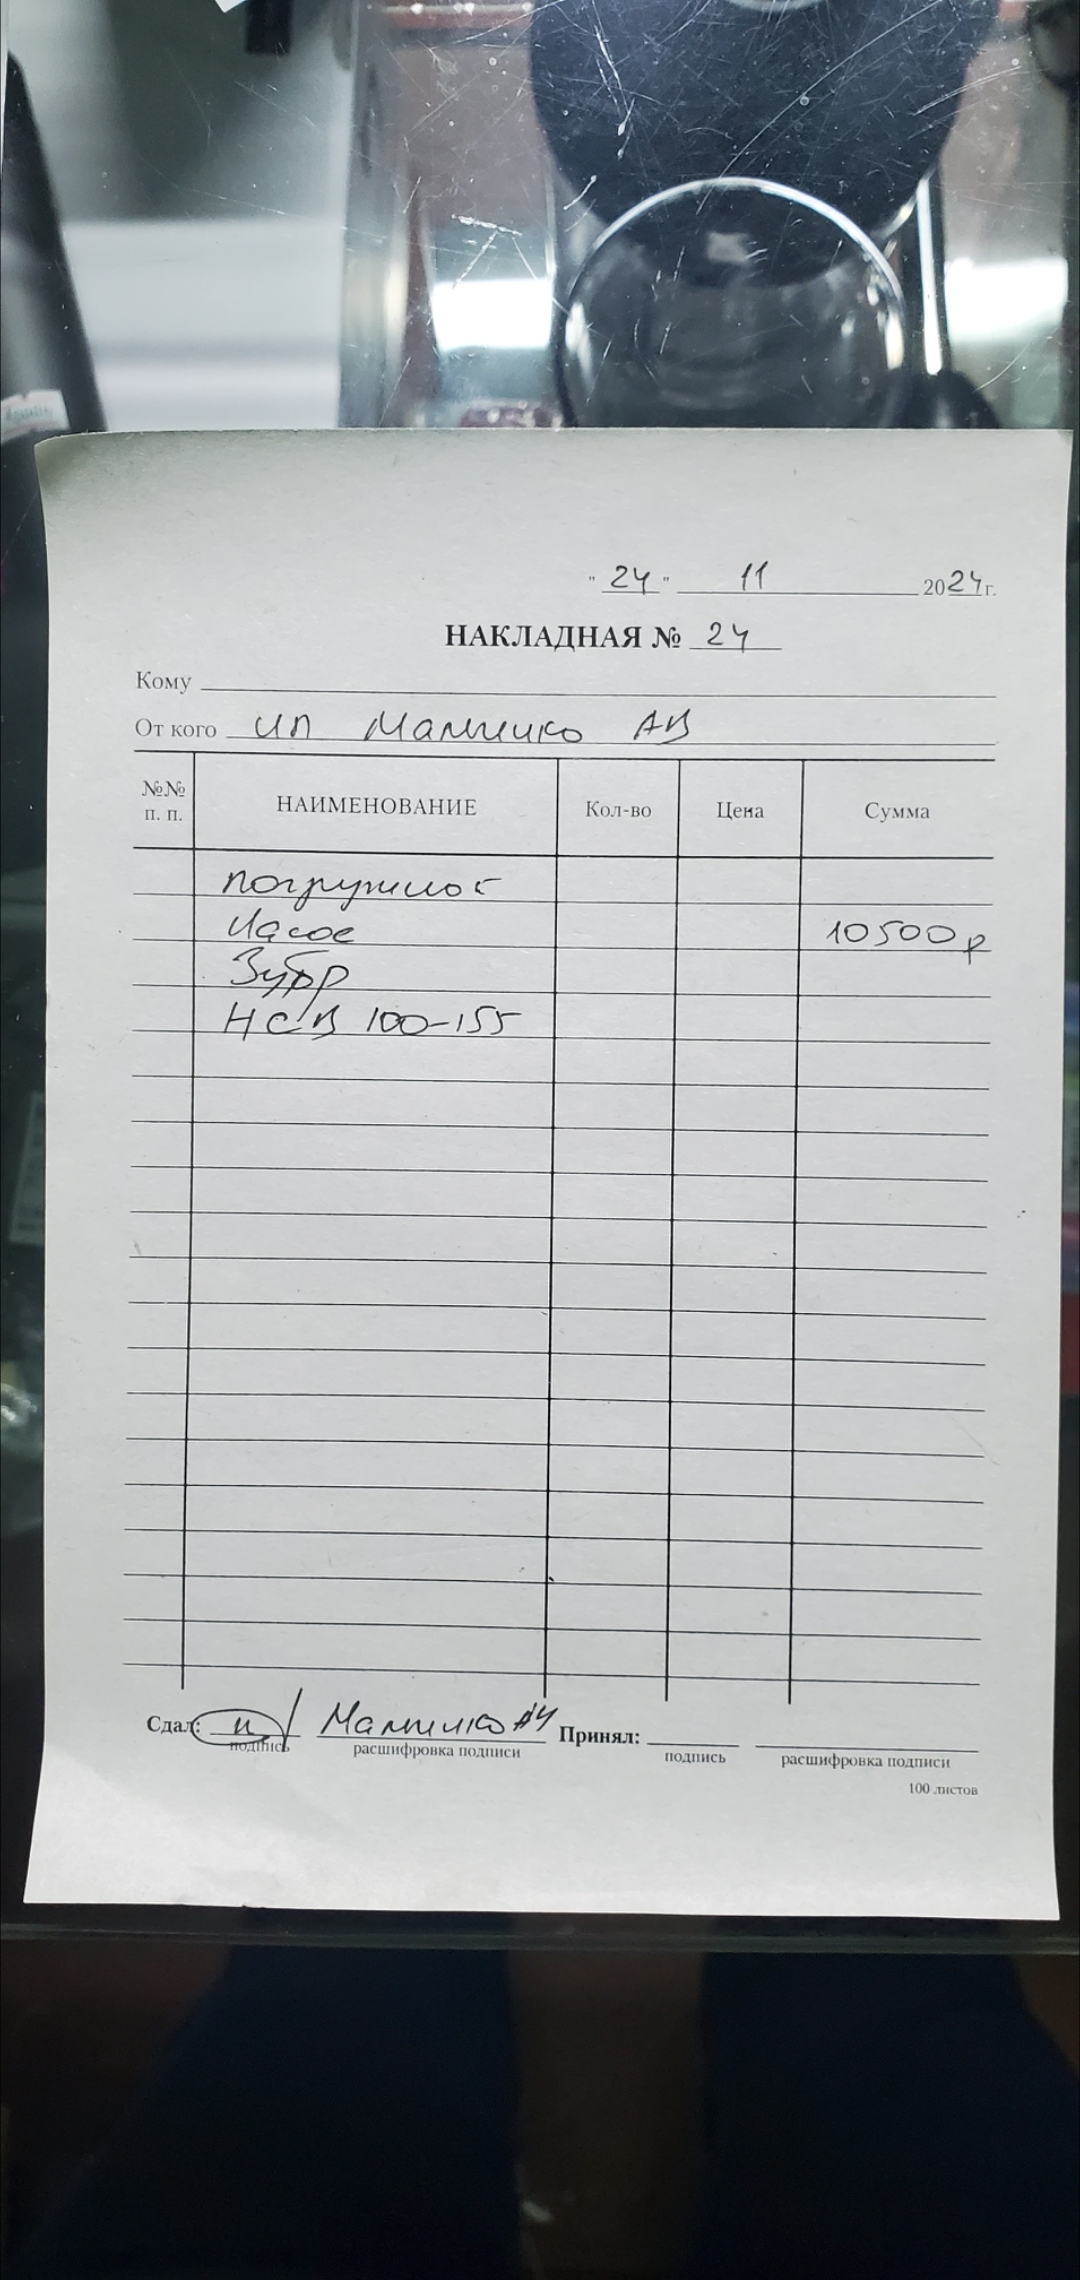 "24" 11 2024г.
НАКЛАДНАЯ № 24
Кому
От кого ИП АВ
№№ п. п. НАИМЕНОВАНИЕ Кол-во Цена Сумма
погружной
Насос 10500р
Зубр
НСВ 100-155
Сдал: Принял:
подпись расшифровка подписи подпись расшифровка подписи
100 листов